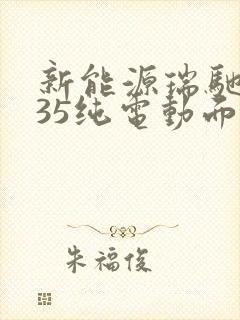 新能源瑞馳
35纯電動而
朱福俊